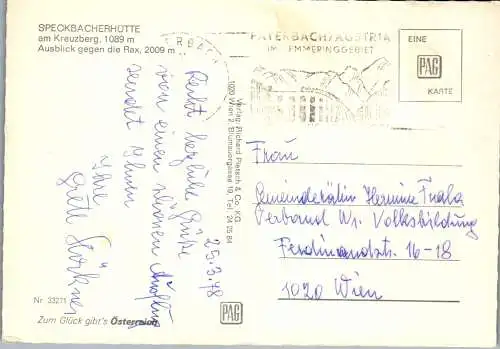 SPECKBACHERHÜTTE
am Kreuzberg, 1089 m
Ausblick gegen die Rax, 2009 m
PAYERBACH/AUSTRIA
IM SEMMERINGGEBIET
EINE
PAG
KARTE
25.3.78
Recht herzliche Grüße
von einem schönen Ausflug
sendet Ihnen
Ihre
Verlag: Richard Pietsch & Co. KG
1020 Wien 2, Blumauergasse 19, Tel. 24 25 84
Frau
Gemeinderätin Hermine
Verband Wr. Volksbildung
Ferdinandstr. 16-18
1020 Wien
Nr. 33211
Zum Glück gibt's Österreich
PAG